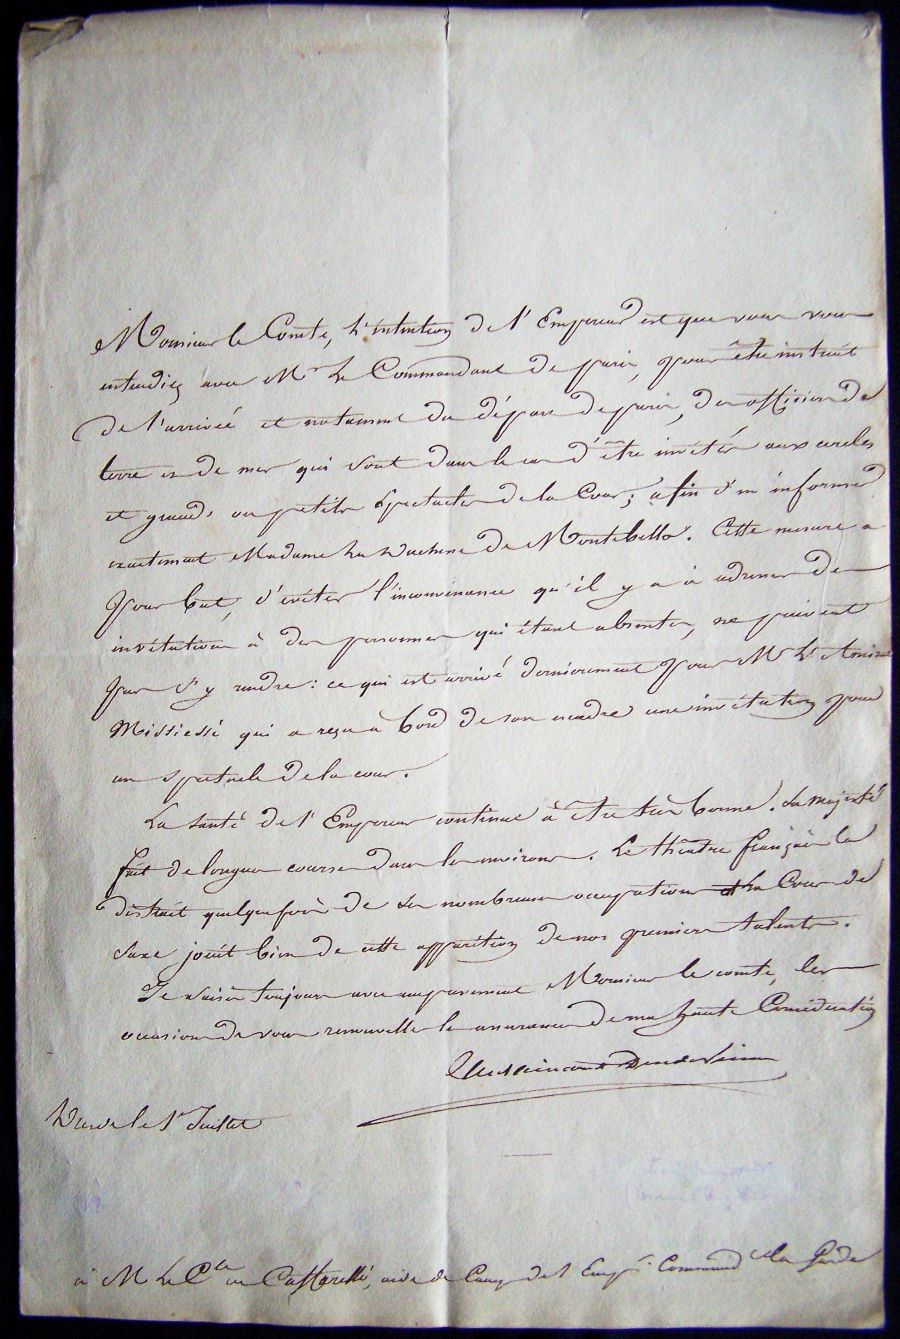 Monsieur le Comte, L'intention de l'Empereur est que vous vous
entendiez avec Mr Le Commandant de paris, pour être instruit
de l'arrivée et notamment du départ de paris, des officiers de
terre et de mer qui sont dans le cas d'être invités aux cercles
et grands ou petits spectacles de la Cour; afin d'en informer
exactement Madame La Duchesse de Montebello. Cette mesure a
pour but, d'éviter l'inconvenance qu'il y a à adresser des
invitations à des personnes qui étant absentes, ne peuvent
pas s'y rendre: ce qui est arrivé dernierement pour Mr L'Amiral
Missiessi qui a reçu à bord de son escadre une invitation pour
un spectacle de la cour.
La santé de l'Empereur continue à être très bonne. Sa majesté
fait de longues courses dans les environs. Le théatre français la
distrait quelquefois de ses nombreuses occupations et La Cour de
Saxe jouit bien de cette apparition de nos premiers talents.
Je saisis toujours avec empressement Monsieur le comte, les
occasions de vous renouveller les assurances de ma haute Considération
Dresde le 1er Juillet
à M Le Cte Caffarelli, aide de Camp de l'Empr. Command la Garde